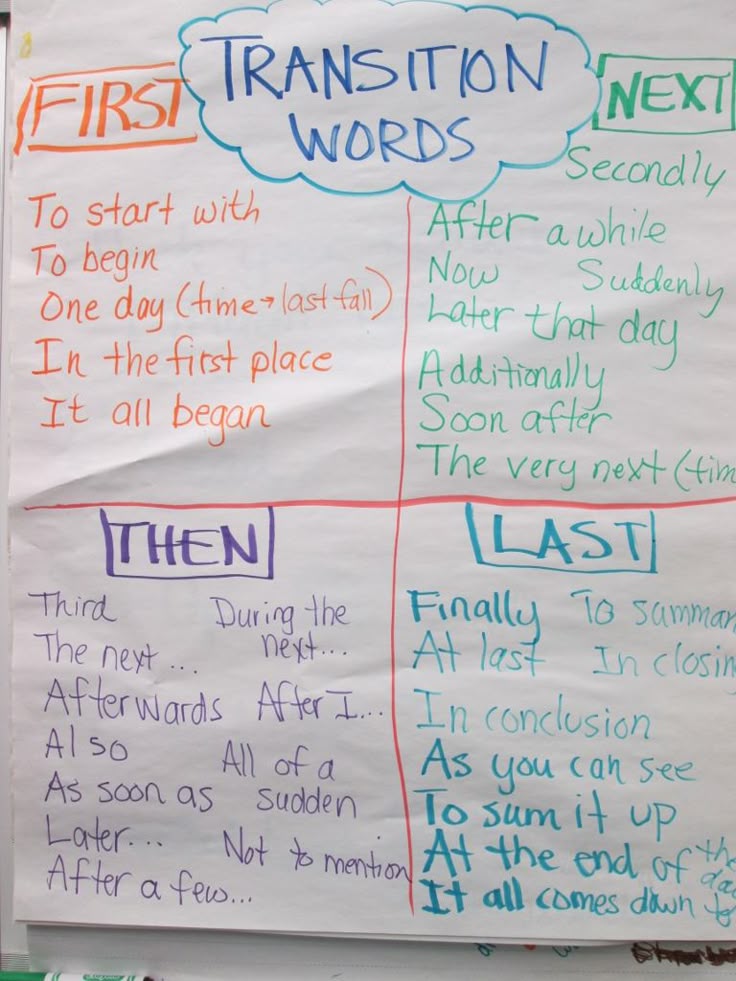 TRANSITION
WORDS
FIRST
To start with
To begin
One day (time→last fall)
In the first place
It all began
NEXT
Secondly
After a while
Now Suddenly
Later that day
Additionally
Soon after
The very next (tim
THEN
Third
During the
next...
The next ...
Afterwards After I...
Also
All of a
sudden
As soon as
Later...
Not to mention
After a few...
LAST
Finally To summar
At last In closing
In conclusion
As you can see
To sum it up
At the end of the
day
It all comes down to